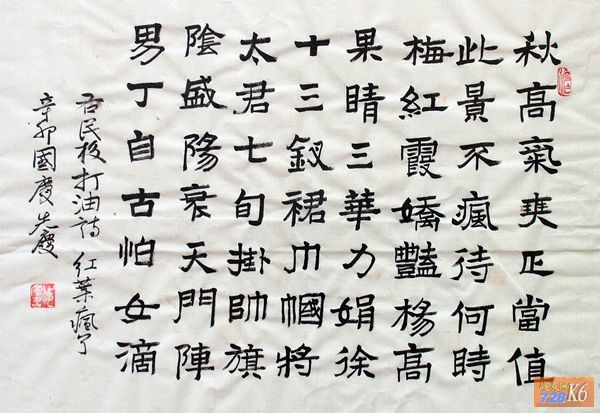 秋高氣爽正當值
此景不瘋待何時
梅紅霞嬌豔楊高
果睛三華力娟徐
十三釵裙巾幗將
太君七旬掛帥旗
陰盛陽衰天門陣
男丁自古怕女滴
民校打油詩 紅葉瘋了
辛卯國慶
战友网
728
K6